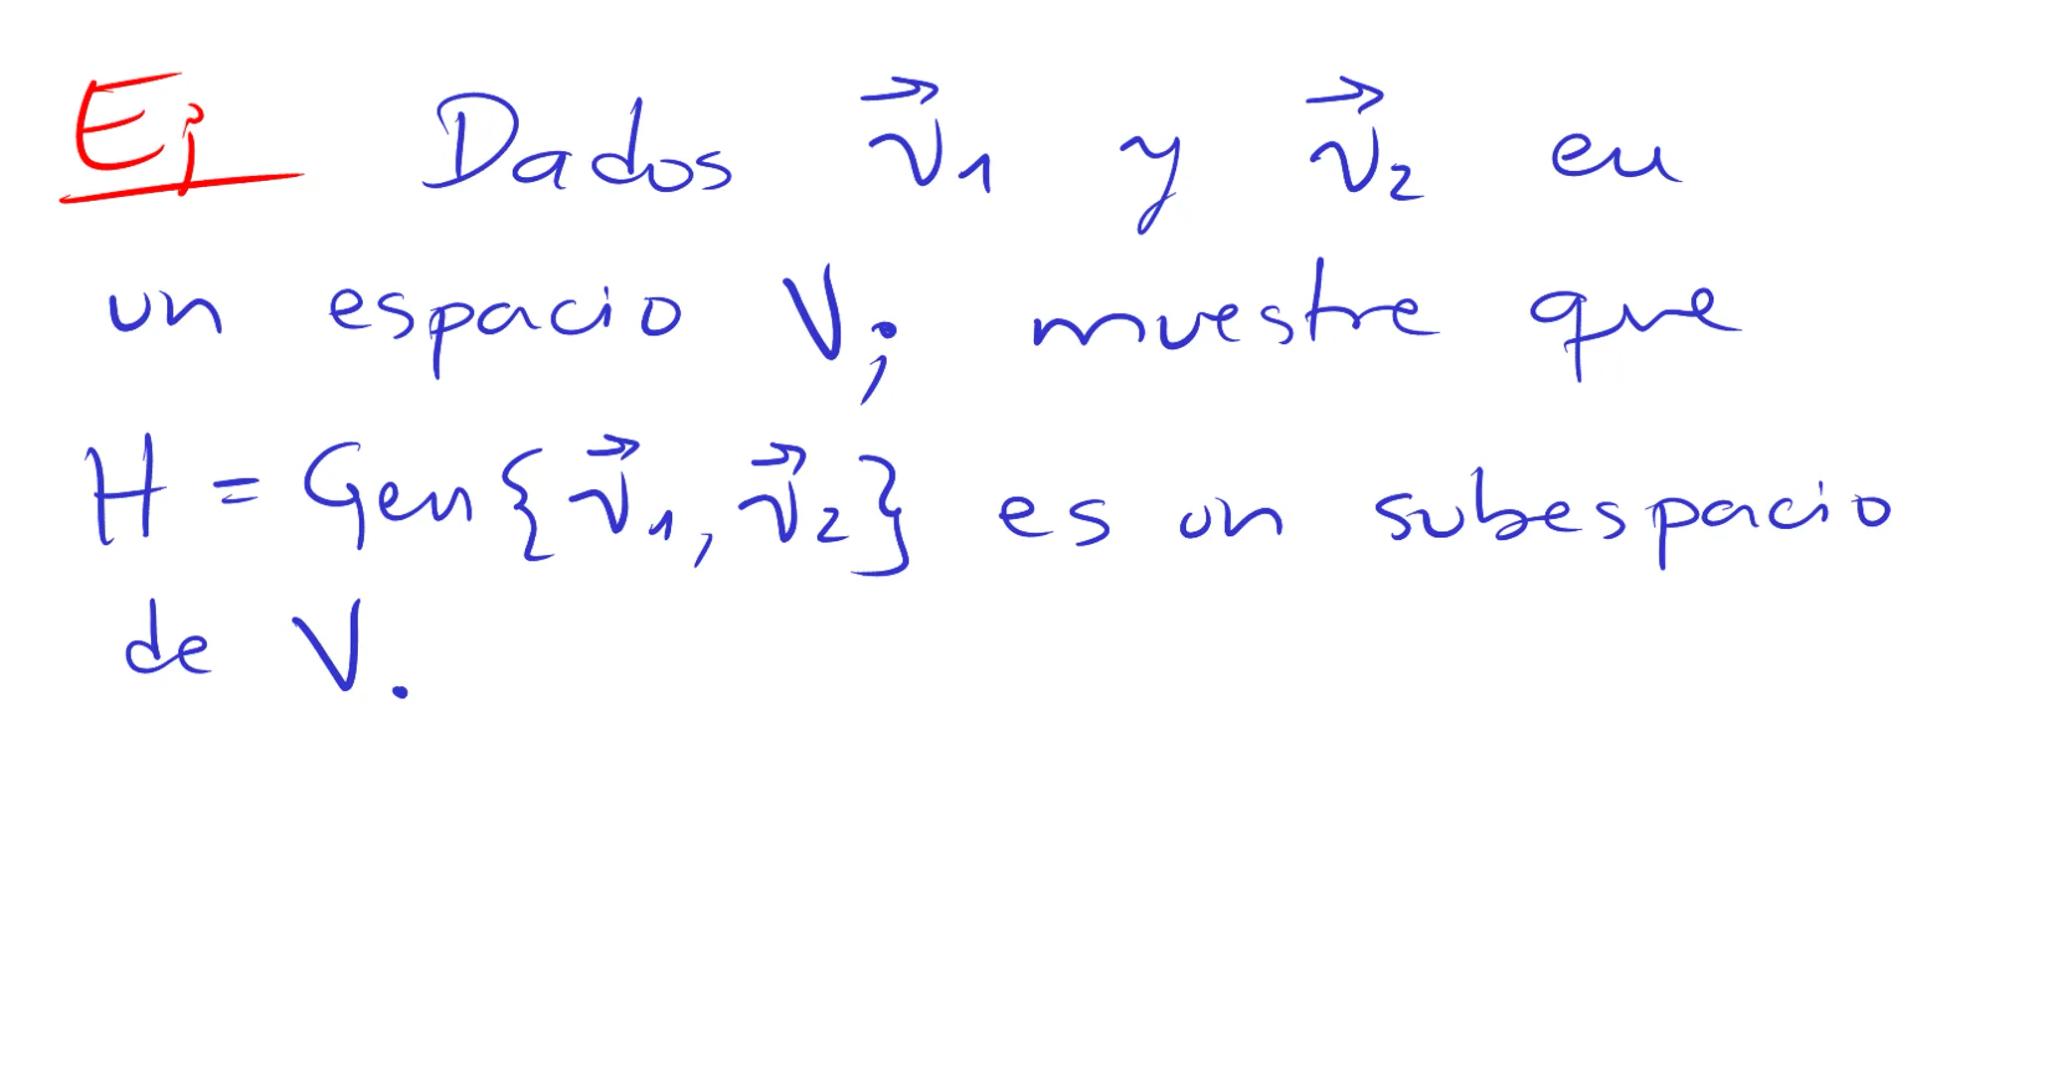 Ej Dados v⃗₁ y v⃗₂ en
un espacio V; muestre que
H = Gen{v⃗₁, v⃗₂} es un subespacio
de V.